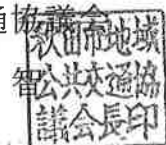 通協議会
智
秋田市地域
公共交通協
議会長印